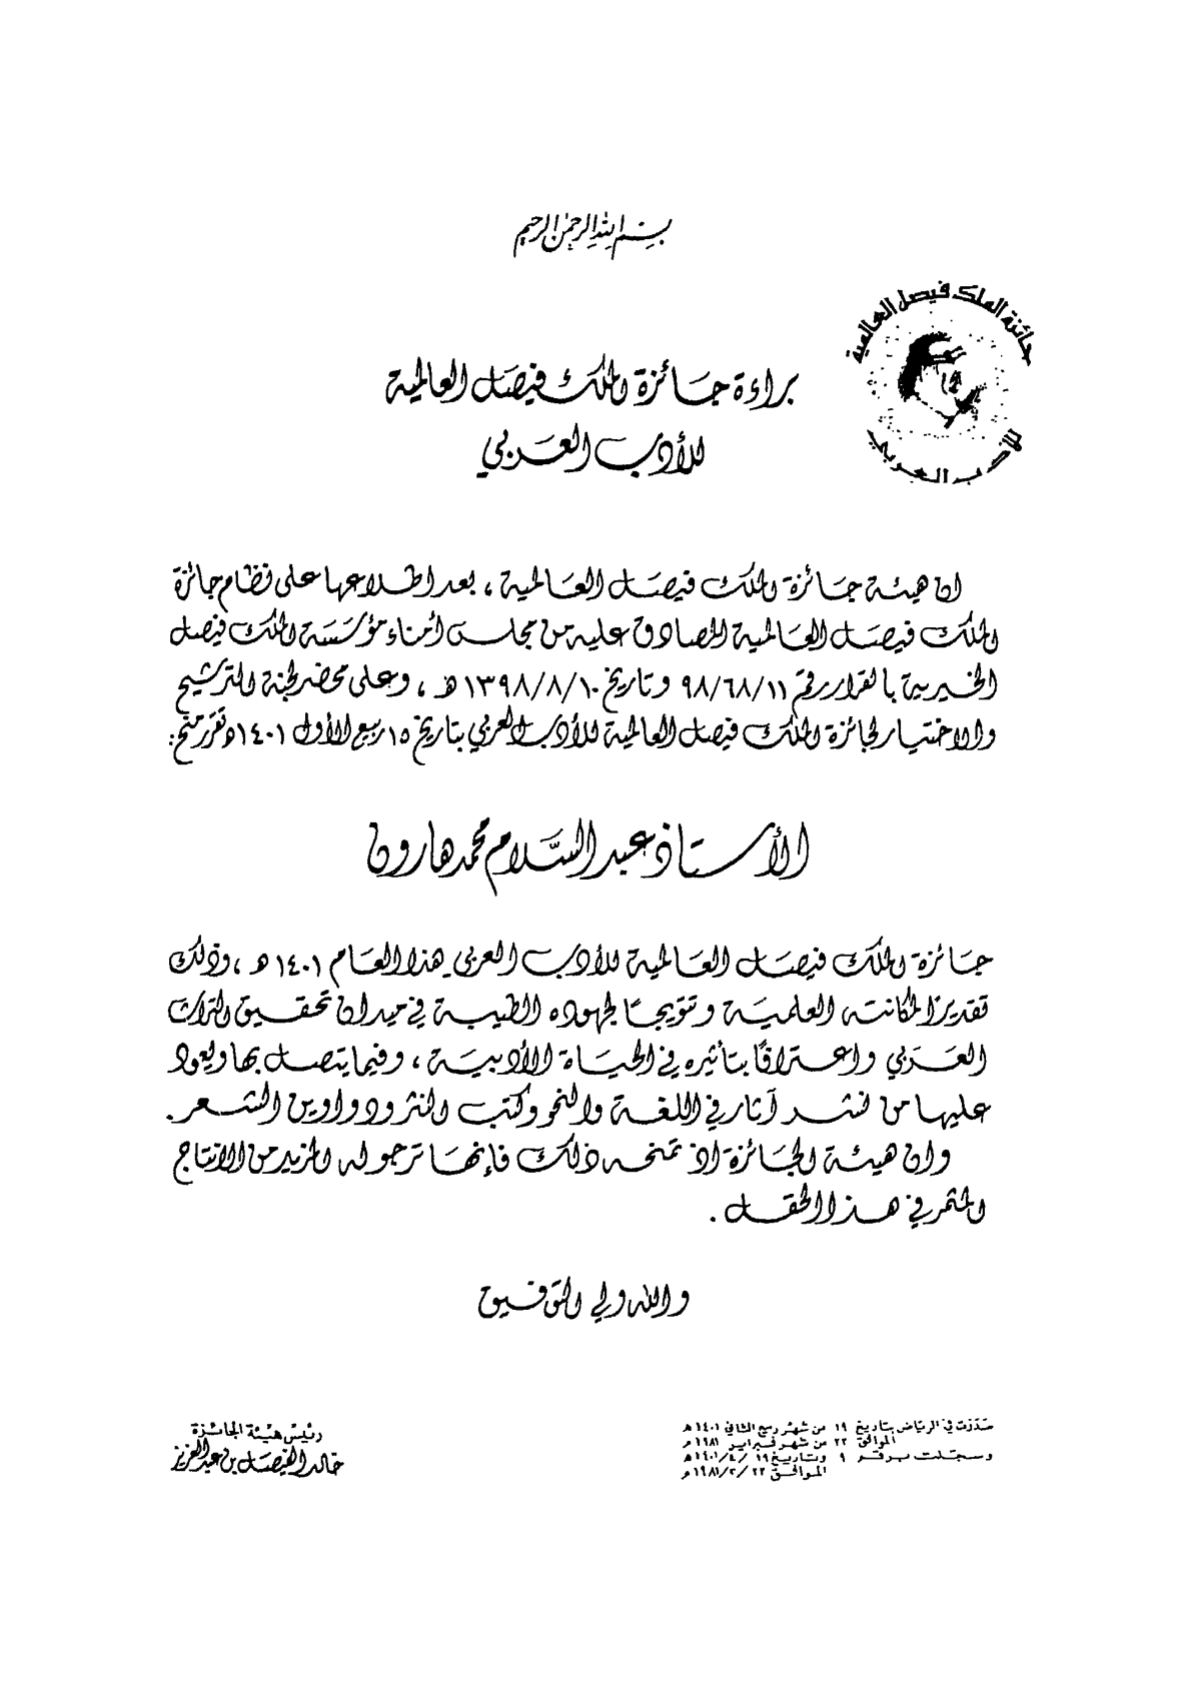 بسم الله الرحمن الرحيم
جائزة الملك فيصل العالمية
للأدب العربي
براءة جائزة الملك فيصل العالمية
للأدب العربي
ان هيئة جائزة الملك فيصل العالمية ، بعد اطلاعها على نظام جائزة
الملك فيصل العالمية المصادق عليه من مجلس أمناء مؤسسة الملك فيصل
الخيرية بالقرار رقم ٩٨/٦٨/١١ وتاريخ ١٣٩٨/٨/١٠ هـ ، وعلى محضر لجنة الترشيح
والاختيار لجائزة الملك فيصل العالمية للأدب العربي بتاريخ ١٥ ربيع الأول ١٤٠١ هـ تقرر منح :
الأستاذ عبد السَّلام محمد هارون
جائزة الملك فيصل العالمية للأدب العربي هذا العام ١٤٠١ هـ ، وذلك
تقديرًا لمكانته العلمية وتتويجًا لجهوده الطيبة في ميدان تحقيق التراث
العربي واعترافًا بتأثيره في الحياة الأدبية ، وفيما يتصل بها ويعود
عليها من نشر آثار في اللغة والنحو وكتب النثر ودواوين الشعر .
وان هيئة الجائزة اذ تمنحه ذلك فإنها ترجو له المزيد من الانتاج
المثمر في هذا الحقل .
والله ولي التوفيق
صدرت في الرياض بتاريخ ١٩ من شهر ربيع الثاني ١٤٠١ هـ
الموافق ٢٢ من شهر فبراير ١٩٨١ م
وسجلت برقم ٩ وتاريخ ١٩ /٤/ ١٤٠١ هـ
الموافق ٢٢ /٢/ ١٩٨١ م
رئيس هيئة الجائزة
خالد الفيصل بن عبد العزيز